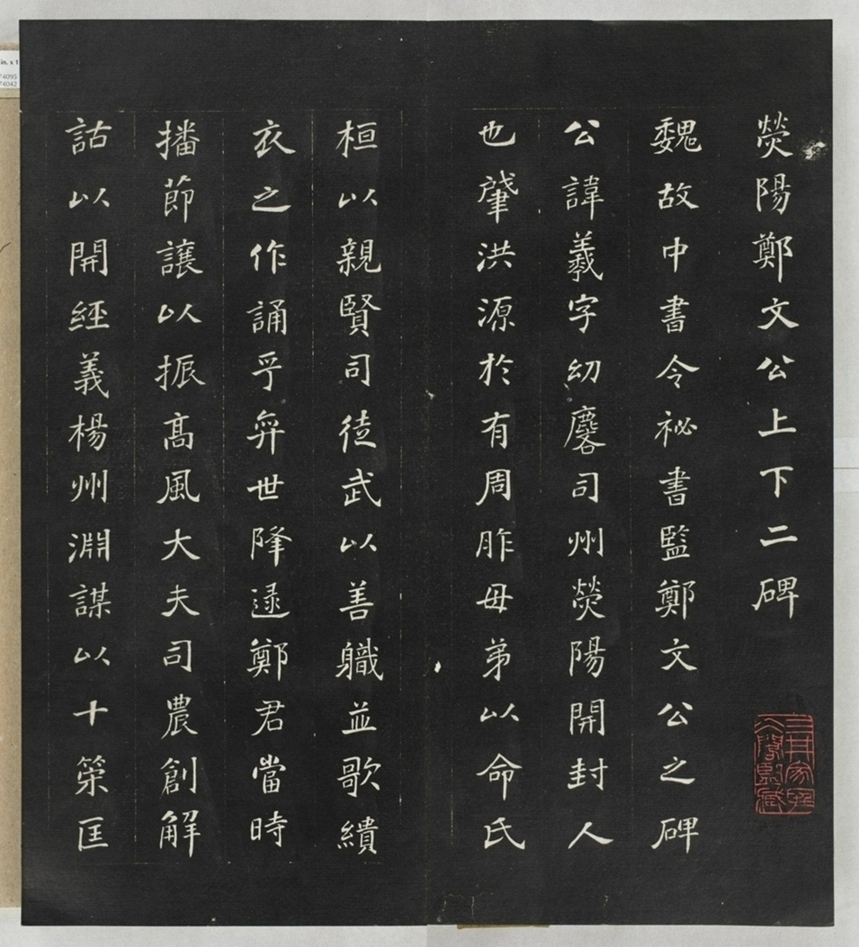 熒陽鄭文公上下二碑
魏故中書令祕書監鄭文公之碑
公諱羲字幼麐司州熒陽開封人
也肇洪源於有周胙母弟以命氏
桓以親賢司徒武以善軄並歌繢
衣之作誦乎弈世降逯鄭君當時
播節讓以振高風大夫司農創解
詁以開經義楊州淵謀以十筞匡